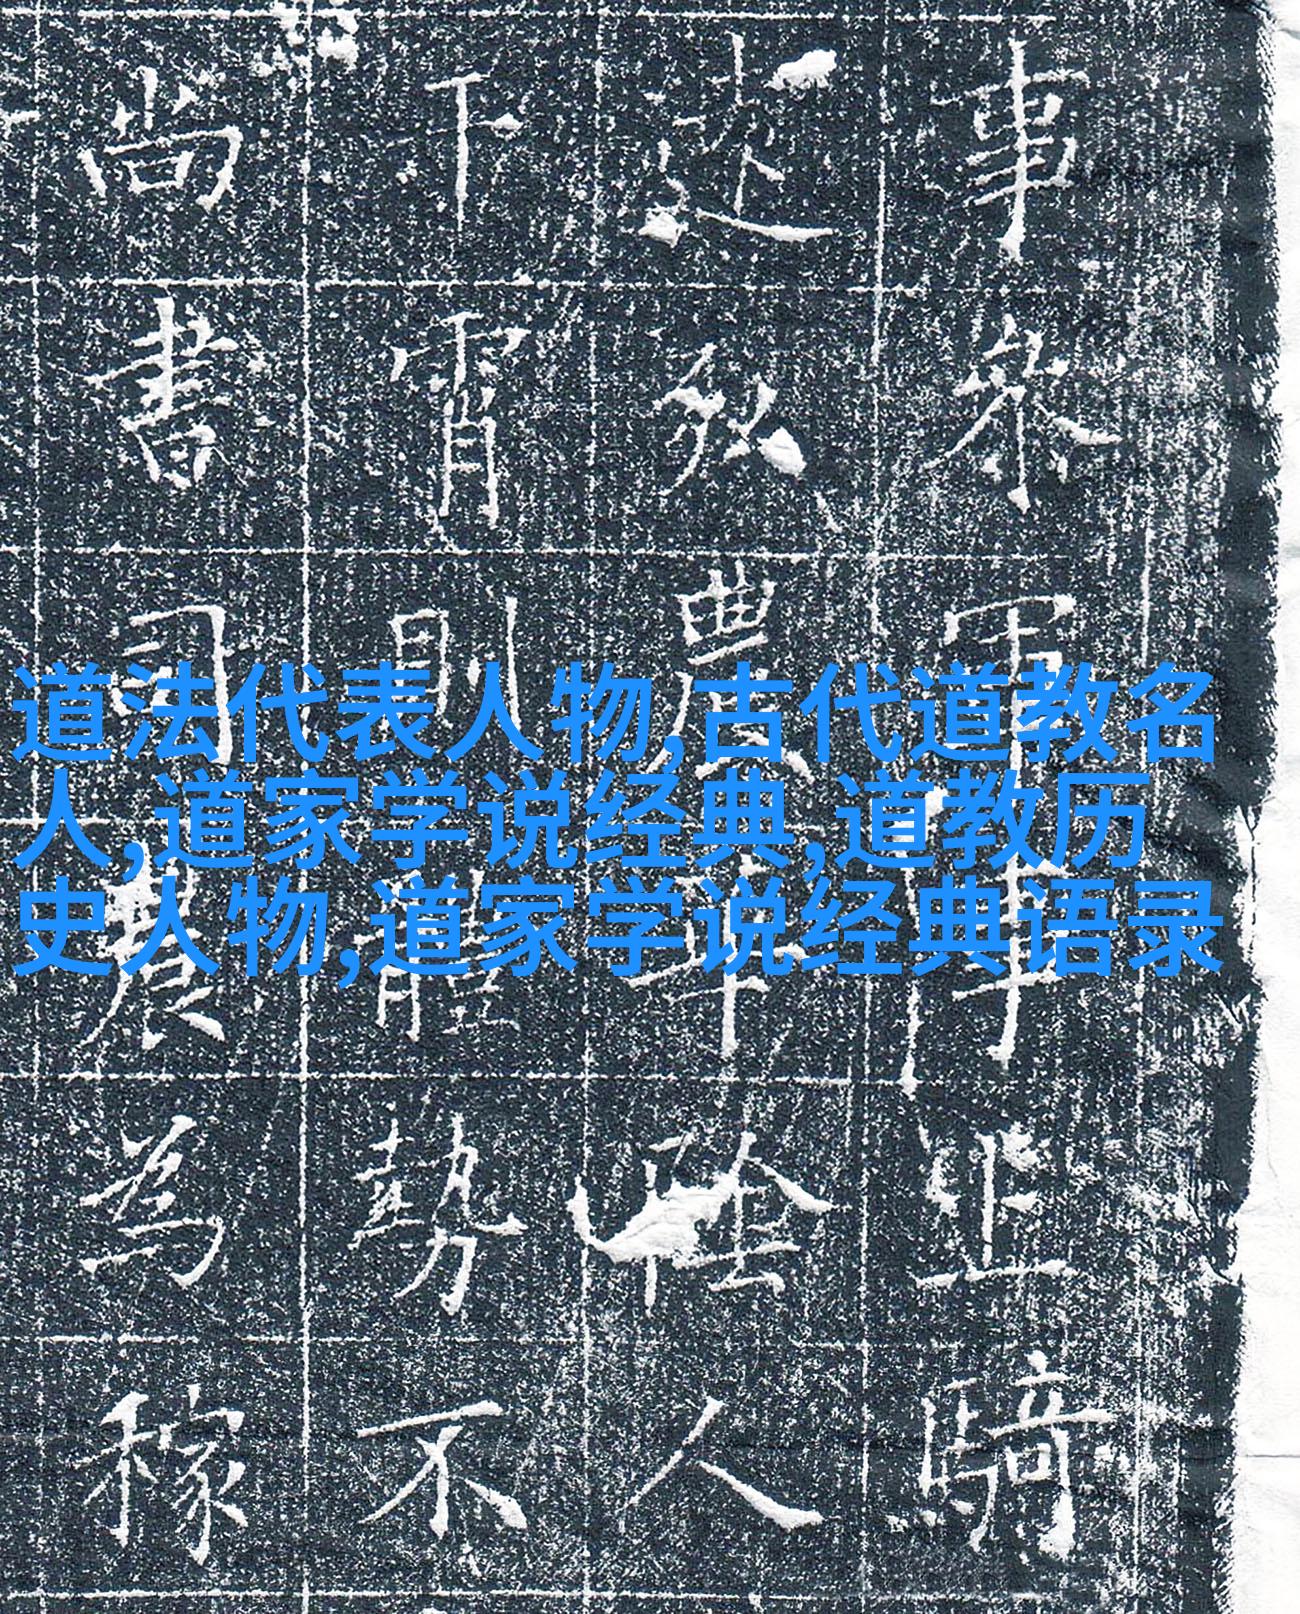 事參軍事上騎
弘農華陰人
下霄則體勢不
尚書司農為稼
道法代表人物,古代道教名
人,道家学说经典,道教历
史人物,道家学说经典语录